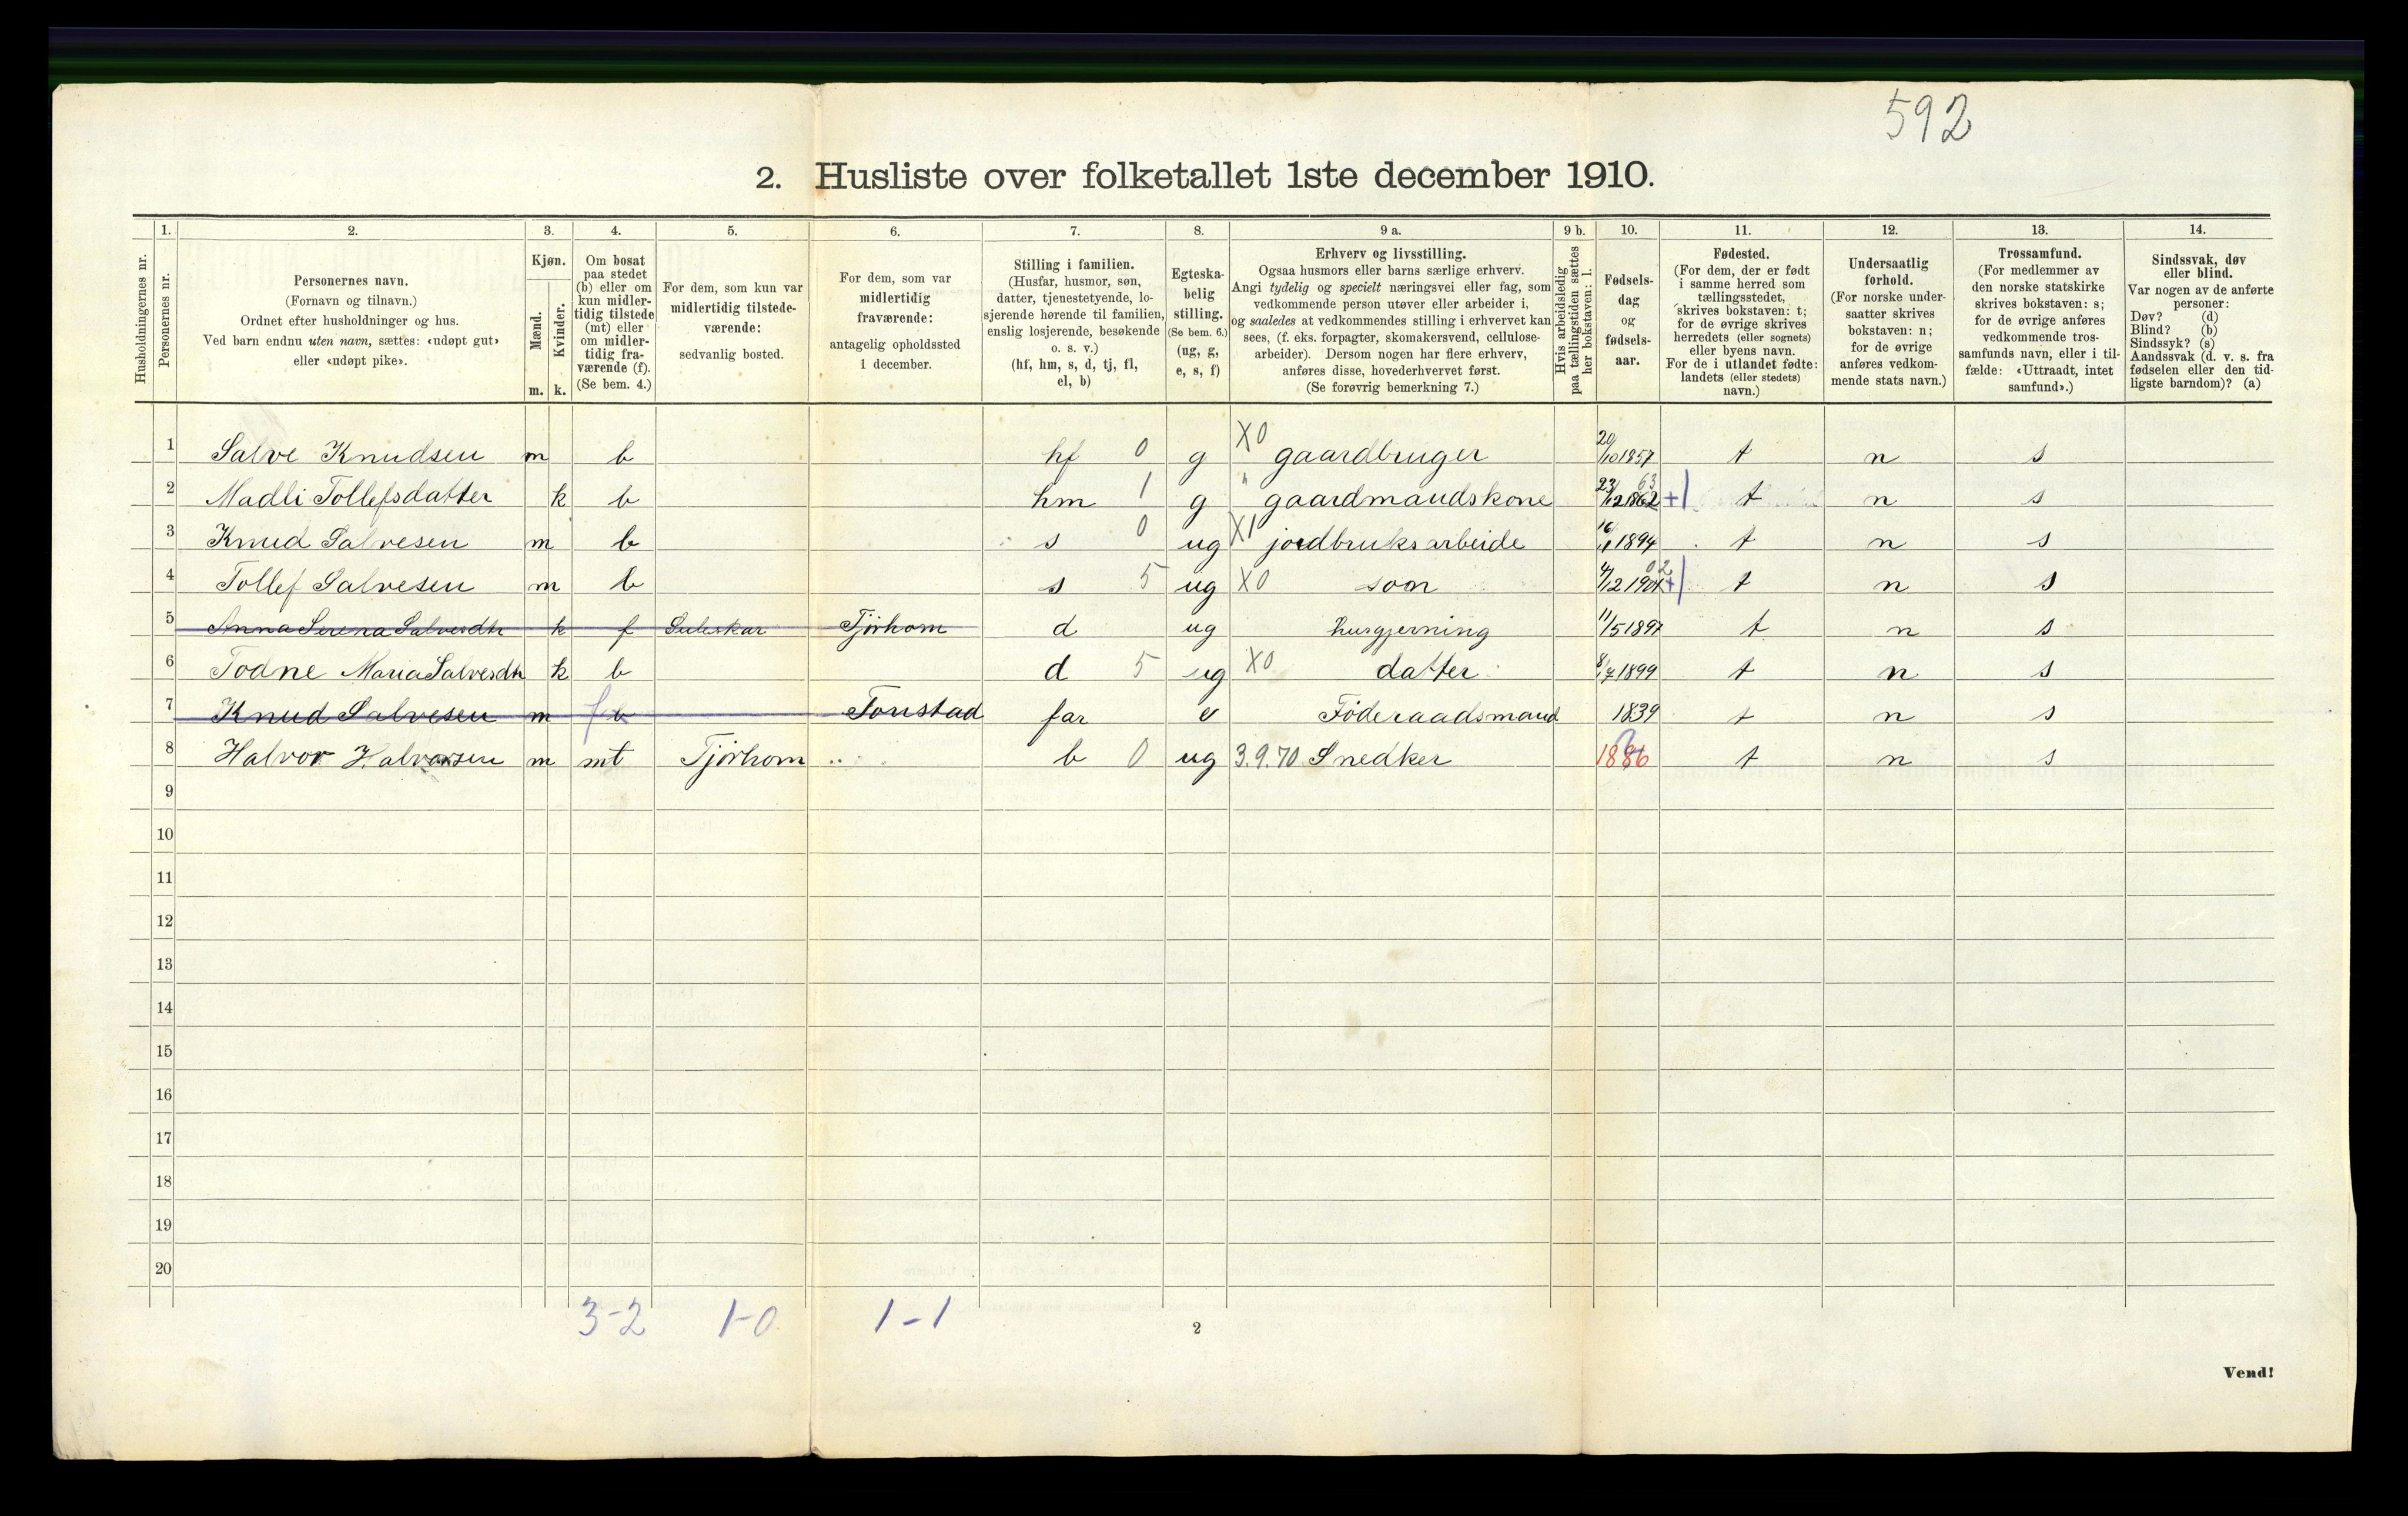 592
2. Husliste over folketallet 1ste december 1910.
Husholdningernes nr.
1. Personernes nr.
2. Personernes navn.
(Fornavn og tilnavn.)
Ordnet efter husholdninger og hus.
Ved barn endnu uten navn, sættes: «udøpt gut»
eller «udøpt pike».
3. Kjøn.
Mænd. m.
Kvinder. k.
4. Om bosat
paa stedet
(b) eller om
kun midler-
tidig tilstede
(mt) eller
om midler-
tidig fra-
værende (f).
(Se bem. 4.)
5. For dem, som kun var
midlertidig tilstede-
værende:
sedvanlig bosted.
6. For dem, som var
midlertidig
fraværende:
antagelig opholdssted
1 december.
7. Stilling i familien.
(Husfar, husmor, søn,
datter, tjenestetyende, lo-
sjerende hørende til familien,
enslig losjerende, besøkende
o. s. v.)
(hf, hm, s, d, tj, fl,
el, b)
8. Egteska-
belig
stilling.
(Se bem. 6.)
(ug, g,
e, s, f)
9 a. Erhverv og livsstilling.
Ogsaa husmors eller barns særlige erhverv.
Angi tydelig og specielt næringsvei eller fag, som
vedkommende person utøver eller arbeider i,
og saaledes at vedkommendes stilling i erhvervet kan
sees, (f. eks. forpagter, skomakersvend, cellulose-
arbeider). Dersom nogen har flere erhverv,
anføres disse, hovederhvervet først.
(Se forøvrig bemerkning 7.)
9 b. Hvis arbeidsledig
paa tællingstiden sættes
her bokstaven: l.
10. Fødsels-
dag
og
fødsels-
aar.
11. Fødested.
(For dem, der er født
i samme herred som
tællingsstedet,
skrives bokstaven: t;
for de øvrige skrives
herredets (eller sognets)
eller byens navn.
For de i utlandet fødte:
landets (eller stedets)
navn.)
12. Undersaatlig
forhold.
(For norske under-
saatter skrives
bokstaven: n;
for de øvrige
anføres vedkom-
mende stats navn.)
13. Trossamfund.
(For medlemmer av
den norske statskirke
skrives bokstaven: s;
for de øvrige anføres
vedkommende tros-
samfunds navn, eller i til-
fælde: «Uttraadt, intet
samfund».)
14. Sindssvak, døv
eller blind.
Var nogen av de anførte
personer:
Døv? (d)
Blind? (b)
Sindssyk? (s)
Aandssvak (d. v. s. fra
fødselen eller den tid-
ligste barndom)? (a)
1 Salve Knudsen m b hf 0 g X0 gaardbruger 20/10 1857 t n s
2 Madli Tollefsdatter k b hm 1 g " gaardmandskone 23/12 1862 63 +1 t n s
3 Knud Salvesen m b s 0 ug X1 jordbruksarbeide 1894 t n s
4 Tollef Salvesen m b s 5 ug X0 søn 4/12 1901 02 +1 t n s
5 Anna Serena Salvesdtr k f Suleskar Tjørhom d ug husgjerning 11/5 1897 t n s
6 Todne Maria Salvesdtr k b d 5 ug X0 datter 8/7 1899 t n s
7 Knud Salvesen m f b Tonstad far e Föderaadsmand 1839 t n s
8 Halvor Halvorsen m mt Tjørhom b 0 ug 3.9.70 Snedker 1886 t n s
9
10
11
12
13
14
15
16
17
18
19
20
3-2 1-0 1-1
2
Vend!